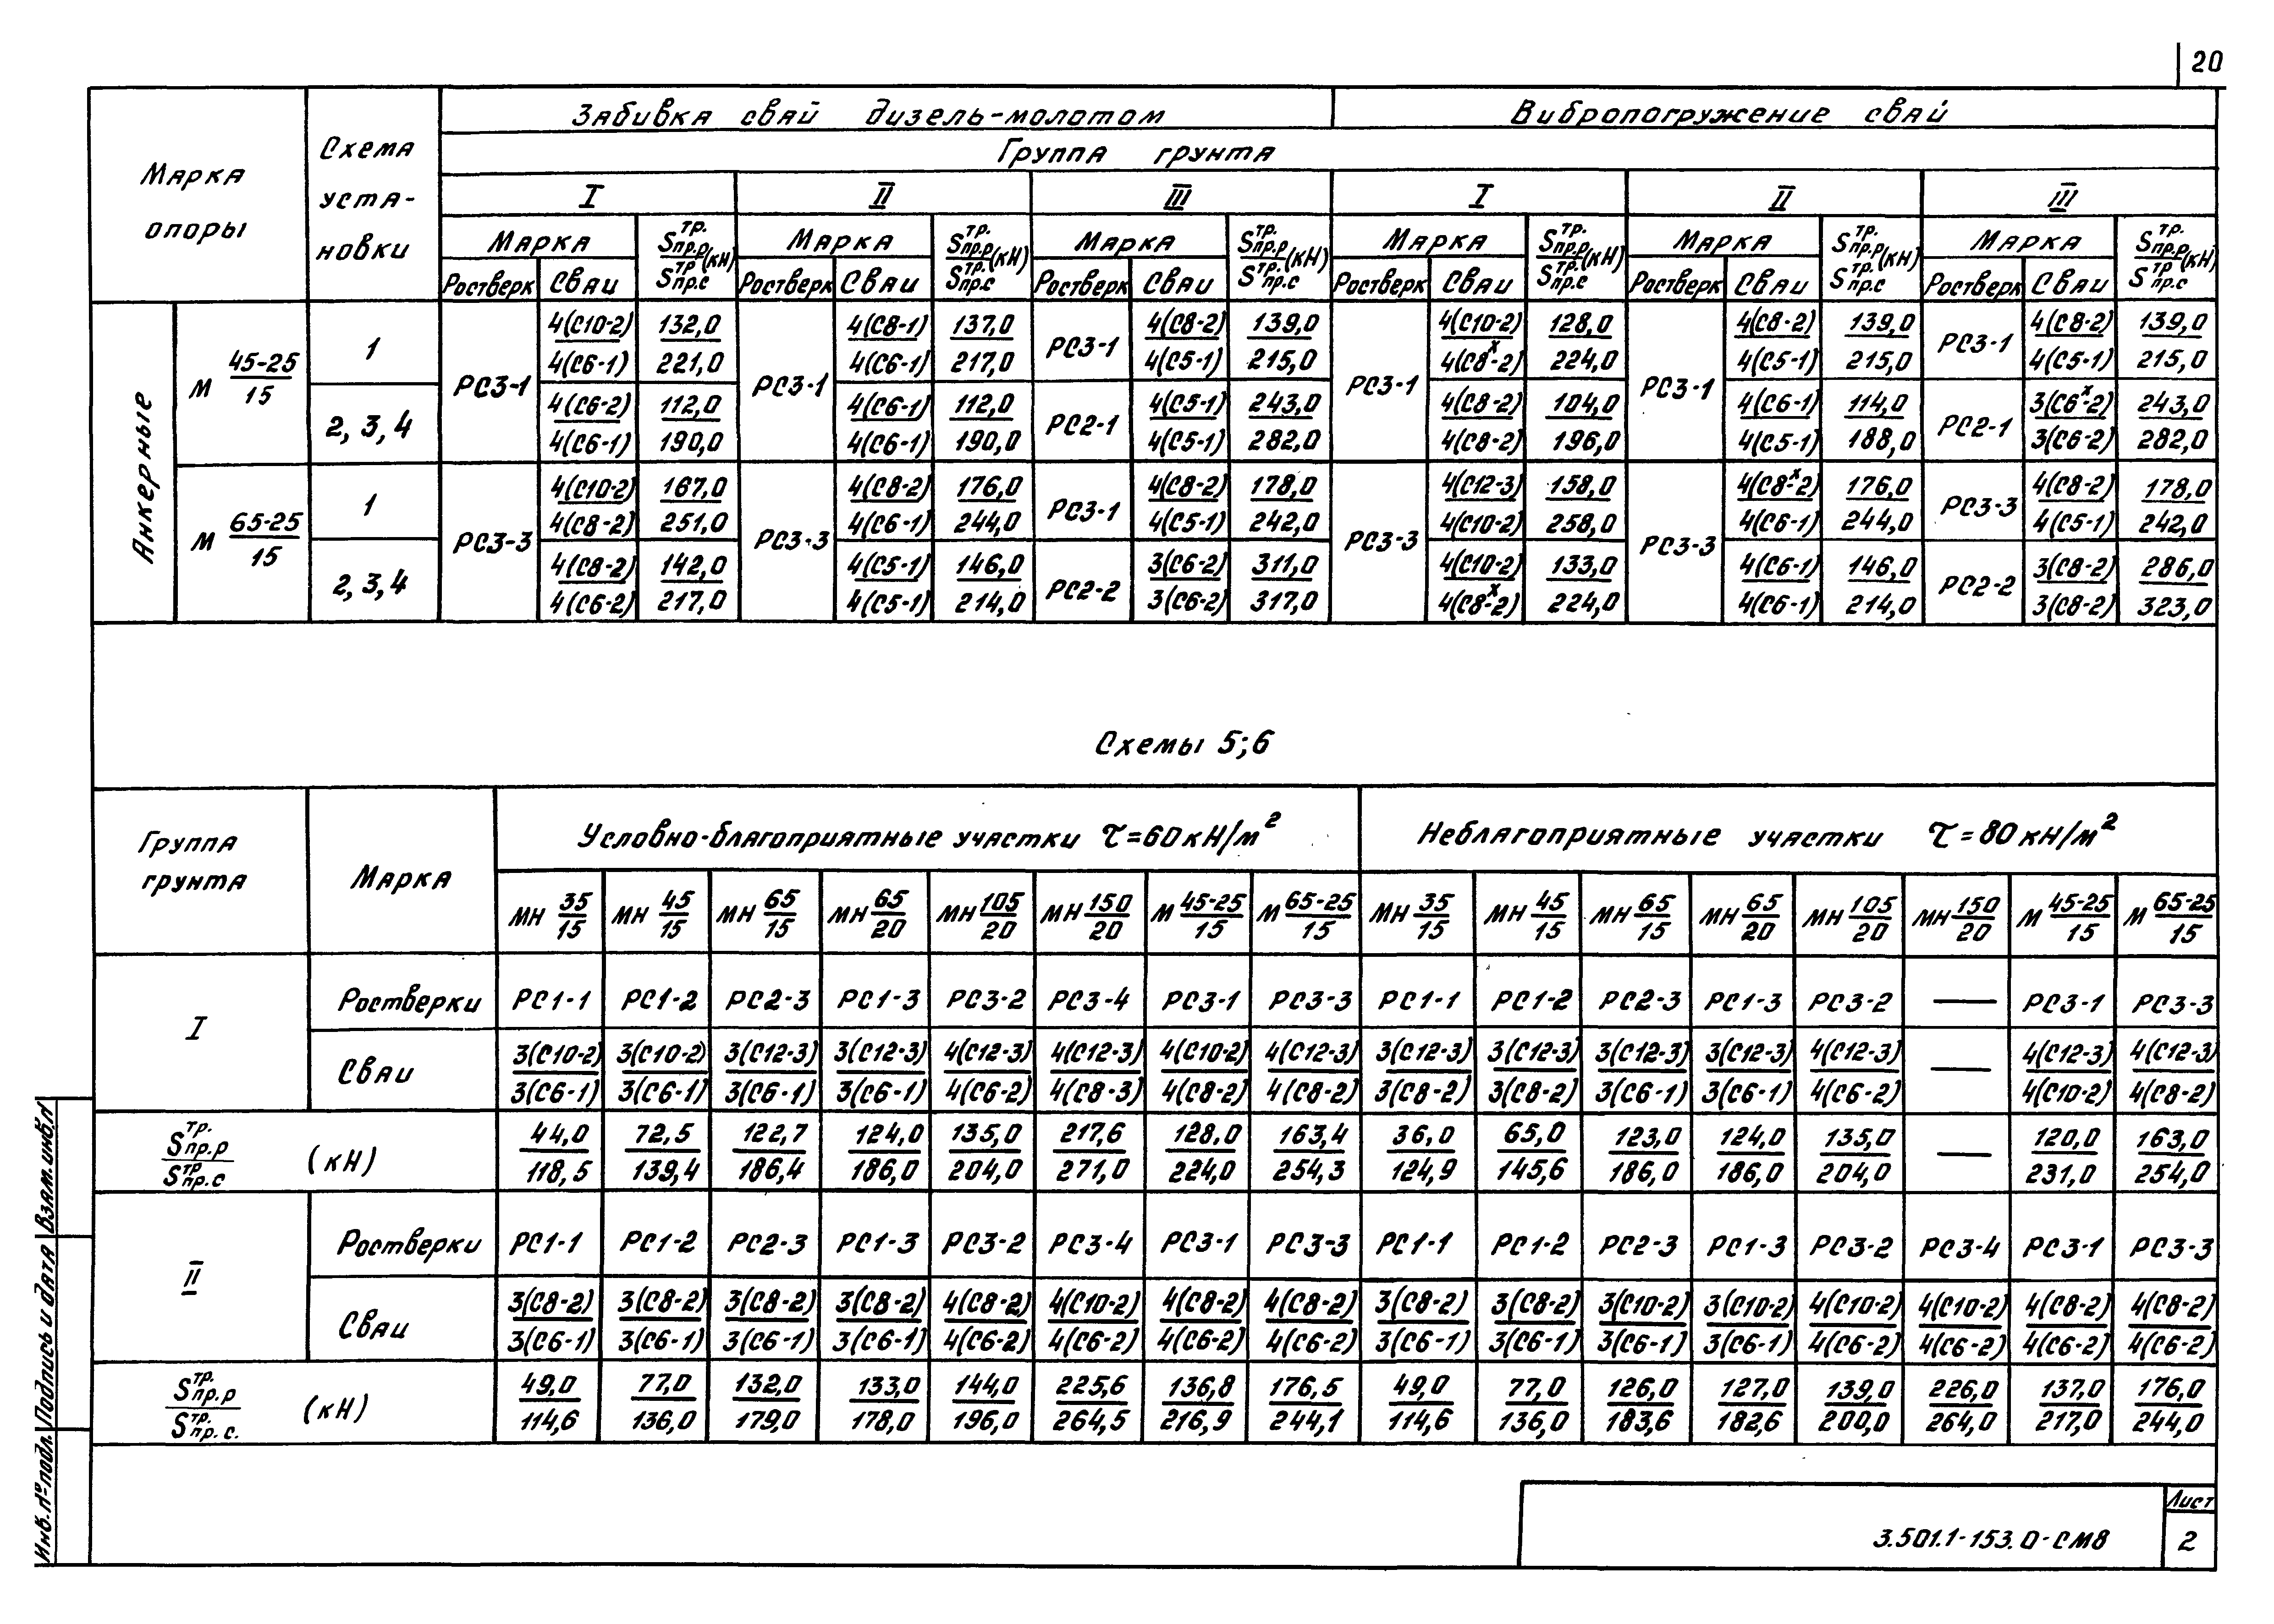 20
Забивка свай дизель-молотом Вибропогружение свай
Марка опоры Схема уста-новки Группа грунта
I II III I II III
Марка Sтр.пр.р/Sтр.пр.с (кН) Марка Sтр.пр.р/Sтр.пр.с (кН) Марка Sтр.пр.р/Sтр.пр.с (кН) Марка Sтр.пр.р/Sтр.пр.с (кН) Марка Sтр.пр.р/Sтр.пр.с (кН) Марка Sтр.пр.р/Sтр.пр.с (кН)
Ростверк Сваи Ростверк Сваи Ростверк Сваи Ростверк Сваи Ростверк Сваи Ростверк Сваи
Анкерные
М 45-25/15 1 РС3-1 4(С10-2)/4(С6-1) 132,0/221,0 РС3-1 4(С8-1)/4(С6-1) 137,0/217,0 РС3-1 4(С8-2)/4(С5-1) 139,0/215,0 РС3-1 4(С10-2)/4(С8ˣ-2) 128,0/224,0 РС3-1 4(С8-2)/4(С5-1) 139,0/215,0 РС3-1 4(С8-2)/4(С5-1) 139,0/215,0
2, 3, 4 4(С6-2)/4(С6-1) 112,0/190,0 4(С6-1)/4(С6-1) 112,0/190,0 РС2-1 4(С5-1)/4(С5-1) 243,0/282,0 4(С8-2)/4(С8-2) 104,0/196,0 4(С6-1)/4(С5-1) 114,0/188,0 РС2-1 3(С6ˣ-2)/3(С6-2) 243,0/282,0
М 65-25/15 1 РС3-3 4(С10-2)/4(С8-2) 167,0/251,0 РС3-3 4(С8-2)/4(С6-1) 176,0/244,0 РС3-1 4(С8-2)/4(С5-1) 178,0/242,0 РС3-3 4(С12-3)/4(С10-2) 158,0/258,0 РС3-3 4(С8ˣ-2)/4(С6-1) 176,0/244,0 РС3-3 4(С8-2)/4(С5-1) 178,0/242,0
2, 3, 4 4(С8-2)/4(С6-2) 142,0/217,0 4(С5-1)/4(С5-1) 146,0/214,0 РС2-2 3(С6-2)/3(С6-2) 311,0/317,0 4(С10-2)/4(С8ˣ-2) 133,0/224,0 4(С6-1)/4(С6-1) 146,0/214,0 РС2-2 3(С8-2)/3(С8-2) 286,0/323,0
Схемы 5;6
Группа грунта Марка Условно-благоприятные участки τ=60кН/м² Неблагоприятные участки τ=80кН/м²
МН 35/15 МН 45/15 МН 65/15 МН 65/20 МН 105/20 МН 150/20 М 45-25/15 М 65-25/15 МН 35/15 МН 45/15 МН 65/15 МН 65/20 МН 105/20 МН 150/20 М 45-25/15 М 65-25/15
I Ростверки РС1-1 РС1-2 РС2-3 РС1-3 РС3-2 РС3-4 РС3-1 РС3-3 РС1-1 РС1-2 РС2-3 РС1-3 РС3-2 — РС3-1 РС3-3
Сваи 3(С10-2)/3(С6-1) 3(С10-2)/3(С6-1) 3(С12-3)/3(С6-1) 3(С12-3)/3(С6-1) 4(С12-3)/4(С6-2) 4(С12-3)/4(С8-3) 4(С10-2)/4(С8-2) 4(С12-3)/4(С8-2) 3(С12-3)/3(С8-2) 3(С12-3)/3(С8-2) 3(С12-3)/3(С6-1) 3(С12-3)/3(С6-1) 4(С12-3)/4(С6-2) — 4(С12-3)/4(С10-2) 4(С12-3)/4(С8-2)
Sтр.пр.р/Sтр.пр.с (кН) 44,0/118,5 72,5/139,4 122,7/186,4 124,0/186,0 135,0/204,0 217,6/271,0 128,0/224,0 163,4/254,3 36,0/124,9 65,0/145,6 123,0/186,0 124,0/186,0 135,0/204,0 — 120,0/231,0 163,0/254,0
II Ростверки РС1-1 РС1-2 РС2-3 РС1-3 РС3-2 РС3-4 РС3-1 РС3-3 РС1-1 РС1-2 РС2-3 РС1-3 РС3-2 РС3-4 РС3-1 РС3-3
Сваи 3(С8-2)/3(С6-1) 3(С8-2)/3(С6-1) 3(С8-2)/3(С6-1) 3(С8-2)/3(С6-1) 4(С8-2)/4(С6-2) 4(С10-2)/4(С6-2) 4(С8-2)/4(С6-2) 4(С8-2)/4(С6-2) 3(С8-2)/3(С6-1) 3(С8-2)/3(С6-1) 3(С10-2)/3(С6-1) 3(С10-2)/3(С6-1) 4(С10-2)/4(С6-2) 4(С10-2)/4(С6-2) 4(С8-2)/4(С6-2) 4(С8-2)/4(С6-2)
Sтр.пр.р/Sтр.пр.с. (кН) 49,0/114,6 77,0/136,0 132,0/179,0 133,0/178,0 144,0/196,0 225,6/264,5 136,8/216,9 176,5/244,1 49,0/114,6 77,0/136,0 126,0/183,6 127,0/182,6 139,0/200,0 226,0/264,0 137,0/217,0 176,0/244,0
Инв.№ подл. Подпись и дата Взам.инв.№
3.501.1-153.0-СМ8
Лист
2